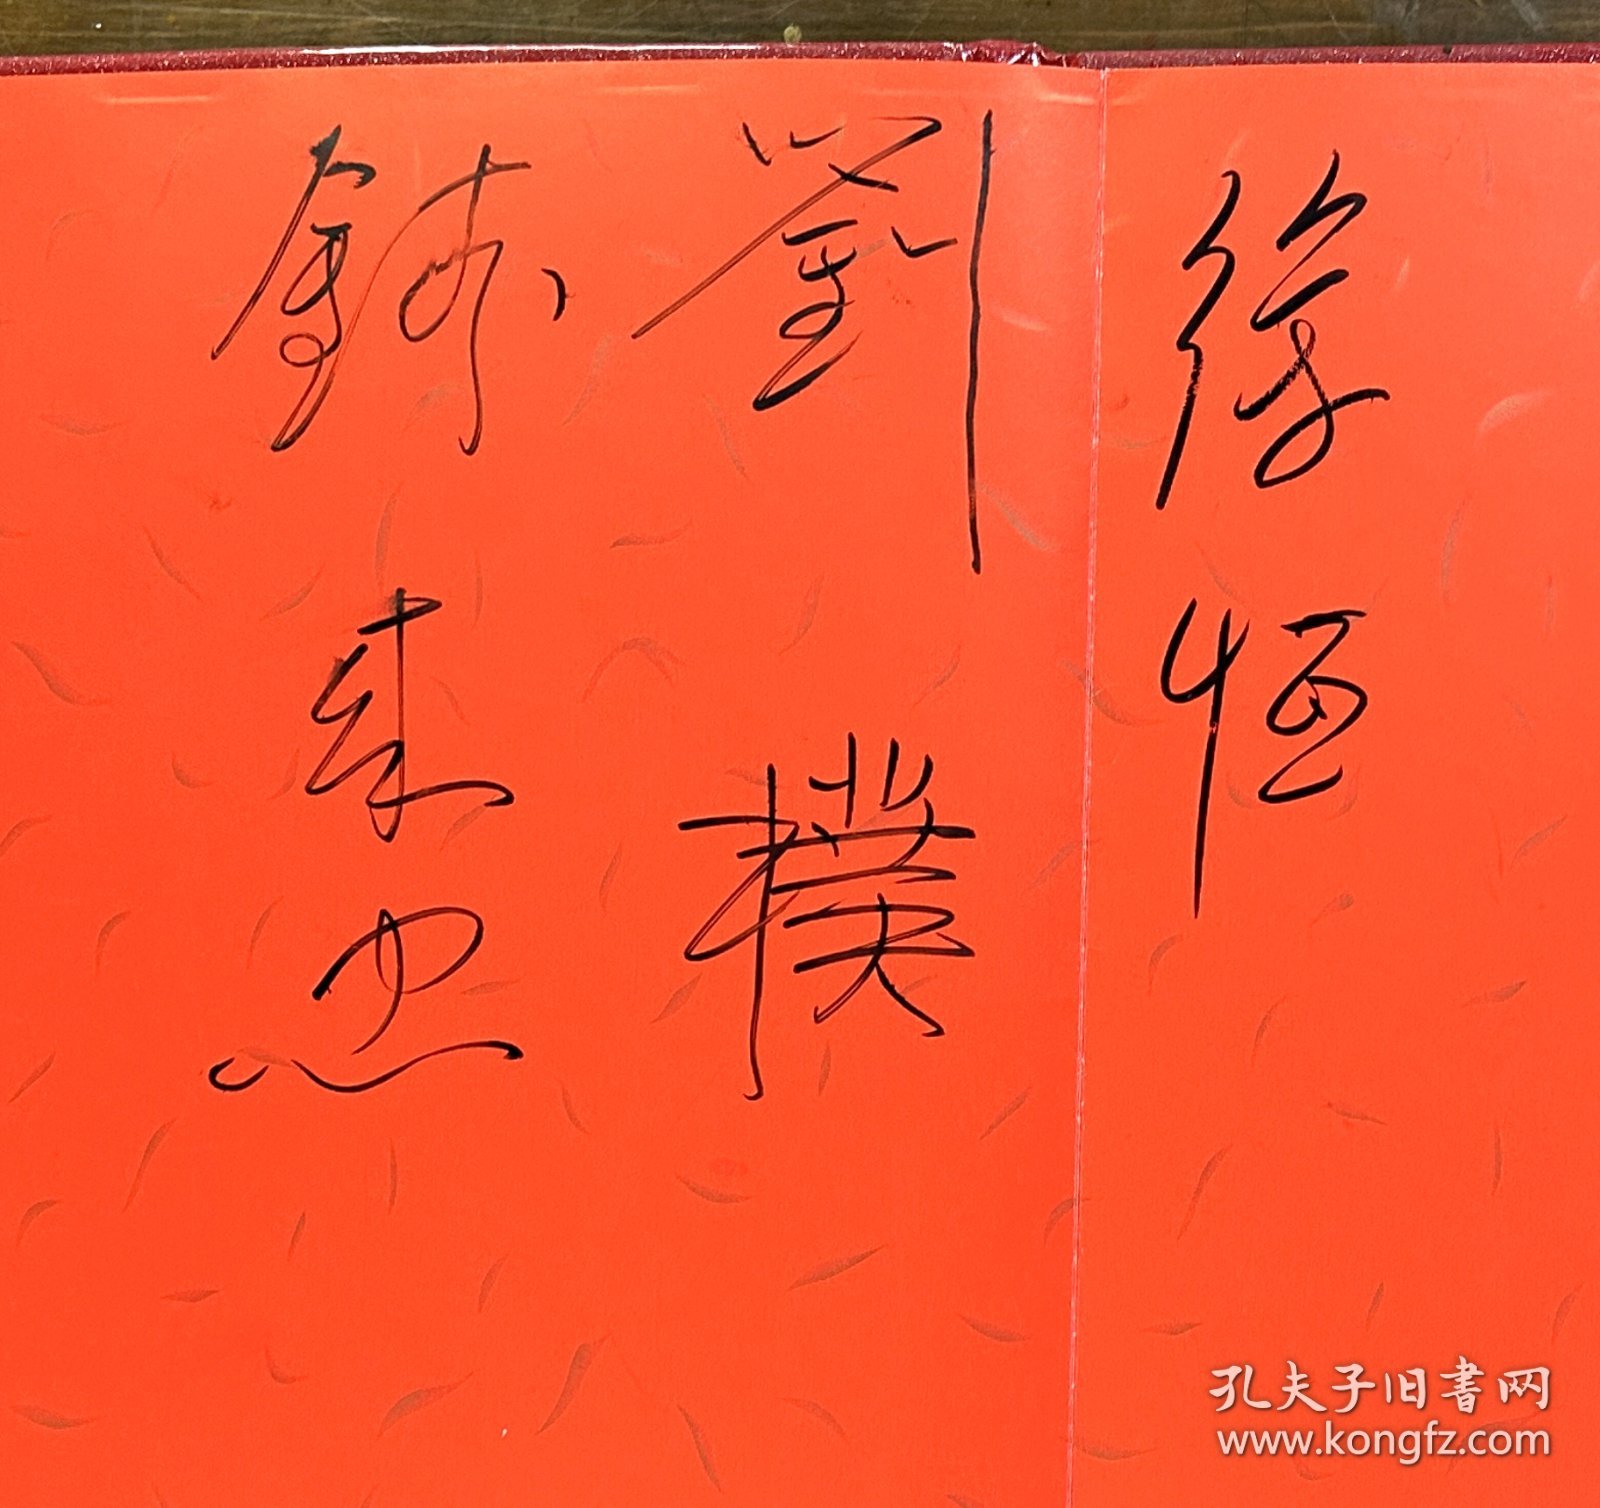 徐恒
劉樸
錢来忠
孔夫子旧書网
www.kongfz.com